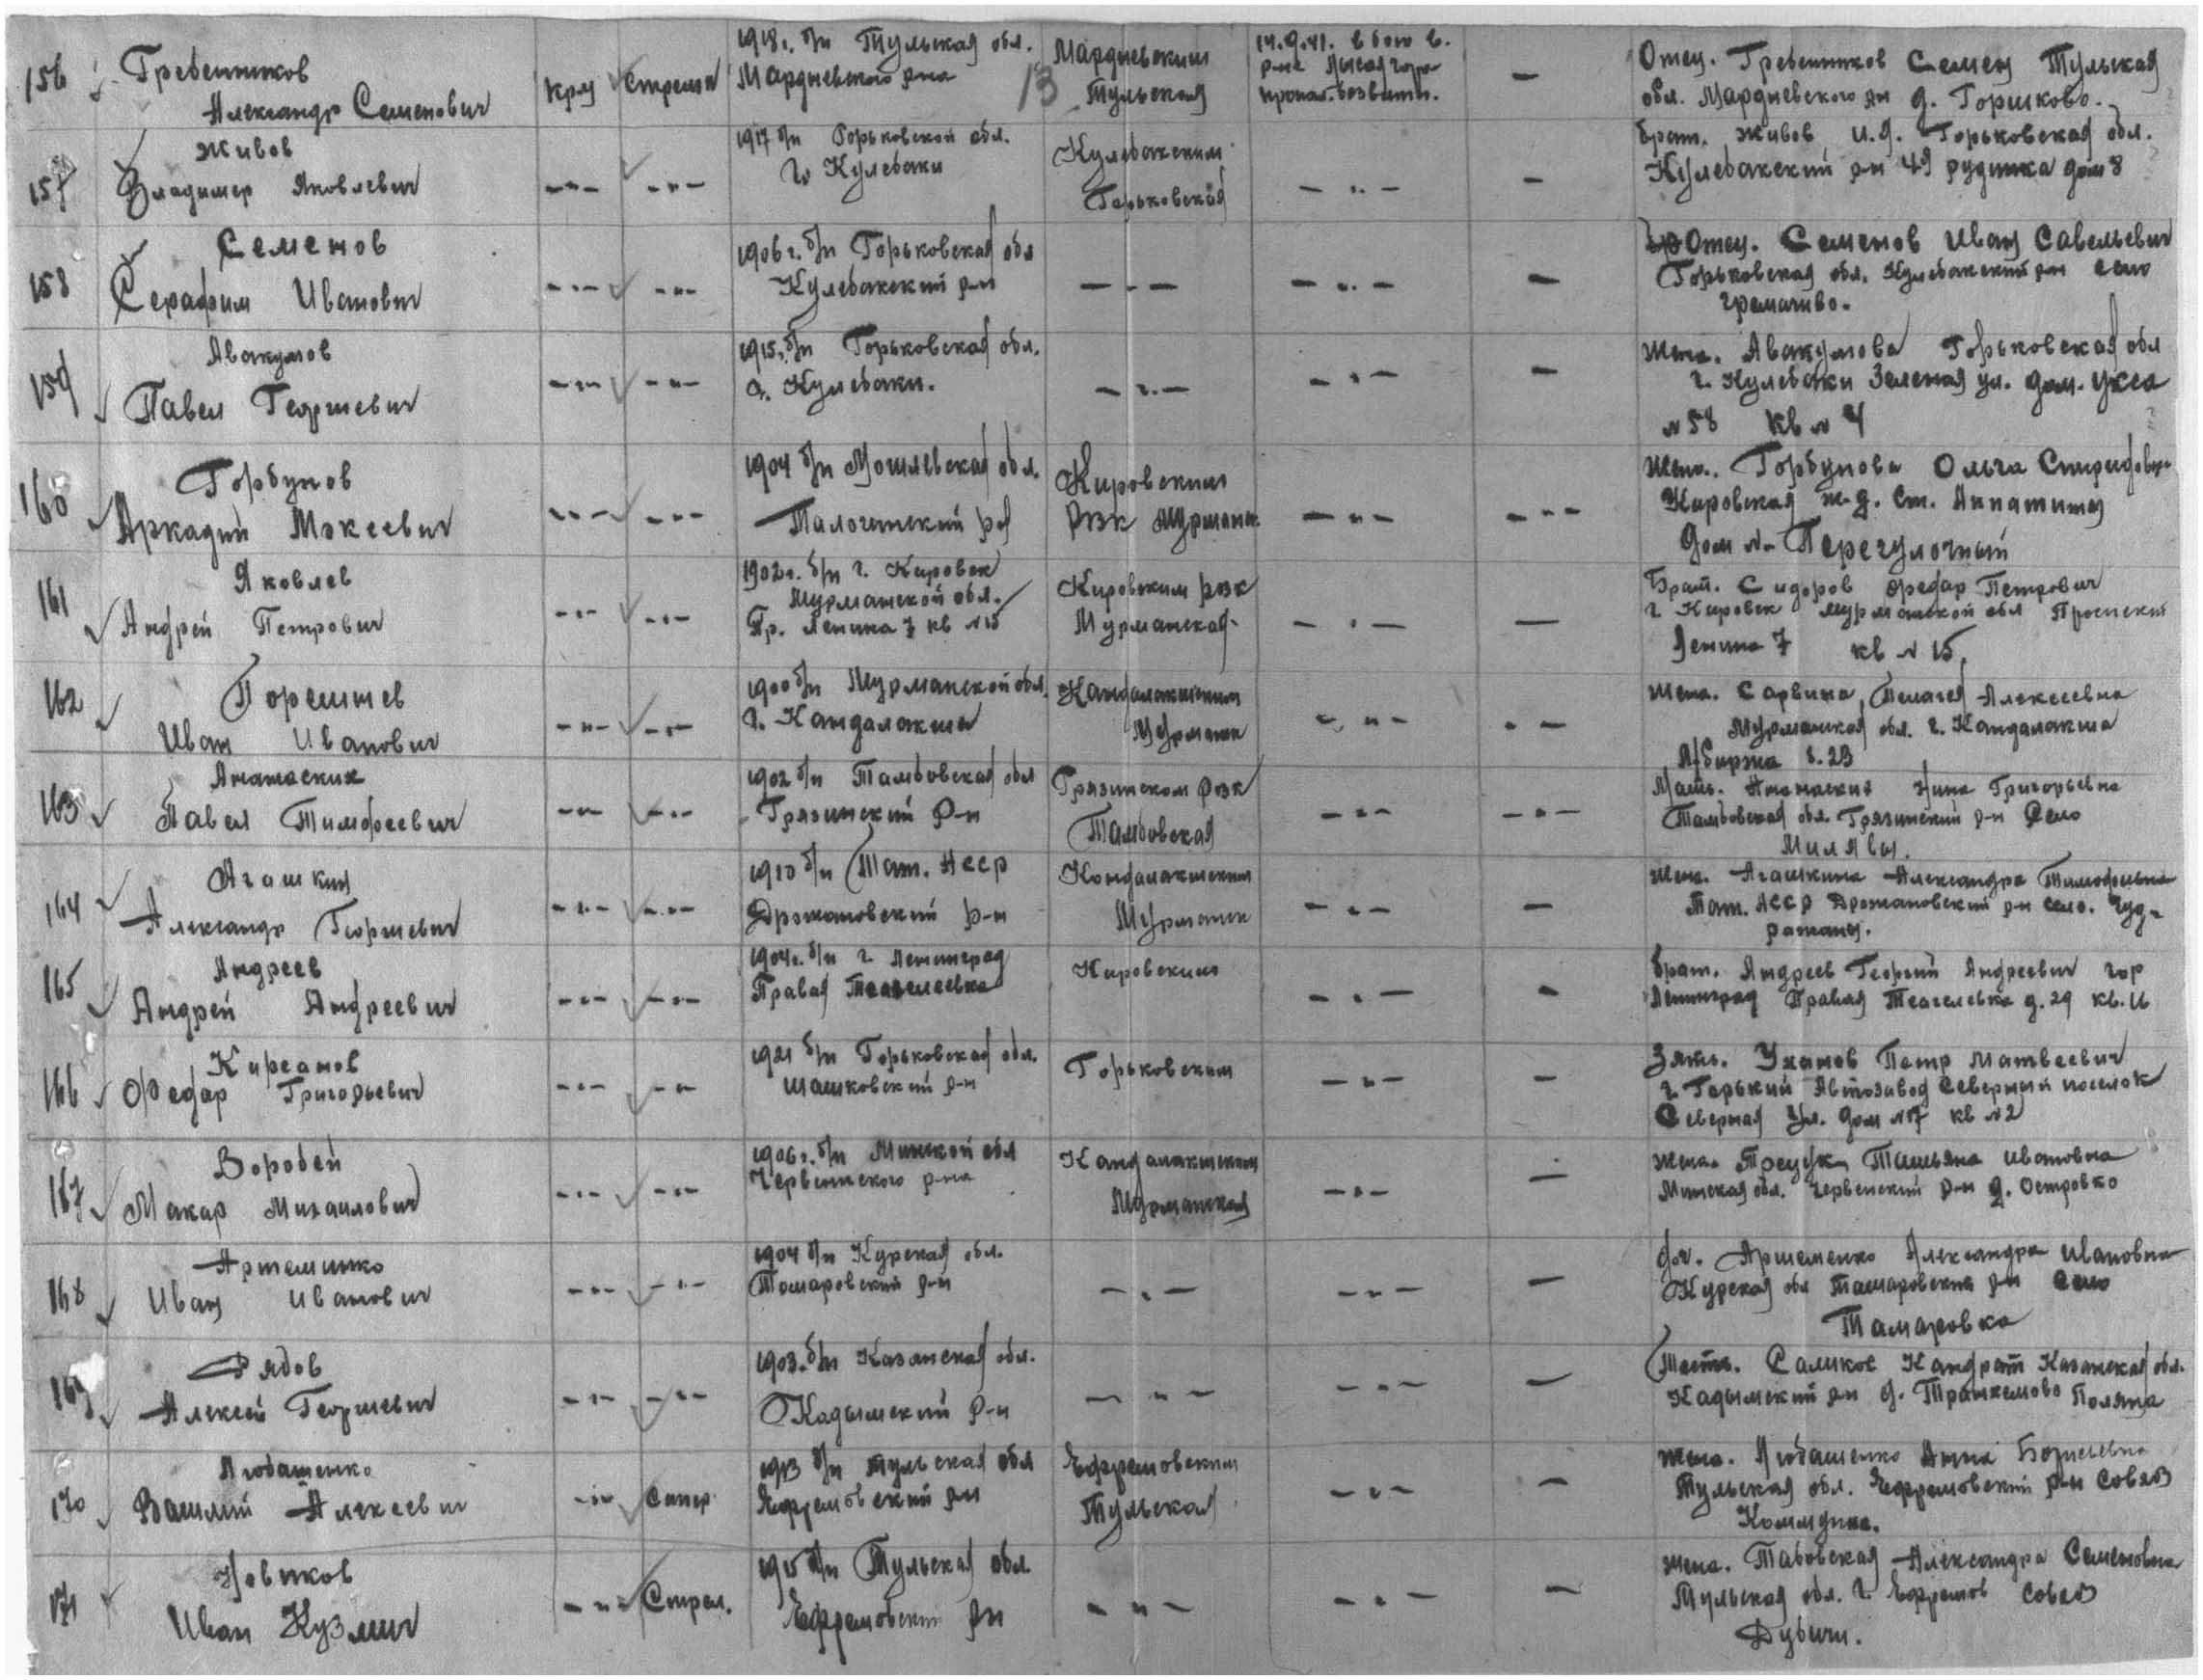 156 Гребенников Александр Семенович кра стрелк 1918г. б/п Тульская обл. Мордневского р-на 13 Мордневским Тульская 14.9.41. в бою в. р-не Лысая гора пропал. безвести. — Отец. Гребенников Семен Тульская
обл. Мордневского рн д. Горшково.
157 Живов Владимер Яковлевич -"- -"- 1917 б/п Горьковской обл. г. Кулебаки Кулебакским Горьковская -"- — Брат. Живов И.Я. Горьковская обл.
Кулебакский р-н 49 рудника дом 8
158 Семенов Серафим Иванович -"- -"- 1906г. б/п Горьковская обл Кулебакский р-н -"- -"- — Отец. Семенов Иван Савельевич
Горьковская обл. Кулебакский р-н село
Гремачиво.
159 Авакумов Павел Георгиевич -"- -"- 1915. б/п Горьковская обл. г. Кулебаки. -"- -"- — Жена. Авакумова Горьковская обл
г. Кулебаки Зеленая ул. дом.
№ 58 кв № 4
160 Горбунов Аркадий Мокеевич -"- -"- 1904 б/п Могилевская обл. Талочинский р-н Кировским РВК Мурманск -"- -"- Жена. Горбунова Ольга
Кировская ж-д. ст. Аппатиты
дом №
161 Яковлев Андрей Петрович -"- -"- 1902г. б/п г. Кировск Мурманской обл. Пр. Ленина 7 кв №15 Кировским рвк Мурманская -"- — Брат. Сидоров Федар Петрович
г Кировск Мурманской обл Проспект
Ленина 7 кв № 15
162 Иван Иванович -"- -"- 1900 б/п Мурманской обл. г. Кандалакша Кандалакшским Мурманск -"- - — Жена. Сарвина Пелагея Алексеевна
Мурманская обл. г. Кандалакша
Л/биржа
163 Анатаскин Павел Тимофеевич -"- -"- 1902 б/п Тамбовская обл Грязинский р-н Грязинском рвк Тамбовская -"- -"- Мать. Нина Григорьевна
Тамбовская обл. Грязинский р-н Село
164 Агашкин Александр Георгиевич -"- -"- 1910 б/п Тат. АССР Дрожановский р-н Кондалакшским Мурманск -"- — Жена. Агашкина Александра Тимофеевна
Тат. АССР Дрожановский р-н село.
165 Андреев Андрей Андреевич -"- -"- 1904г. б/п г Ленинград Правая Кировским -"- — Брат. Андреев Георгий Андреевич гор
Ленинград Правая д. 29 кв.
166 Кирсанов Федар Григорьевич -"- -"- 1921 б/п Горьковская обл. Шашковский р-н Горьковским -"- — Зять. Уханов Петр Матвеевич
г. Горький Автозавод Северный поселок
Северная ул. дом №17 кв №2
167 Воробей Макар Михаилович -"- -"- 1906г. б/п Минской обл Червенского р-на Кандалакшским Мурманская -"- — Жена. Татьяна Ивановна
Минская обл. Червенский р-н д. Островко
168 Артеменко Иван Иванович -"- -"- 1904 б/п Курская обл. Томаровский р-н -"- -"- — доч. Артеменко Александра Ивановна
Курская обл Тамаровский р-н село
Тамаровка
169 Рядов Алексей Георгиевич -"- -"- 1903. б/п Казанская обл. Кадымский р-н -"- -"- — Тесть. Кандрат Казанская обл.
Кадымский р-н д. Поляна
170 Любашенко Василий Алексеевич -"- Сапер 1913 б/п Тульская обл Ефремовский рн Ефремовским Тульская -"- — Жена. Любашенко Анна
Тульская обл. Ефремовский р-н Совхоз
Коммуна.
171 Новиков Иван Кузмич -"- Стрел. 1915 б/п Тульская обл Ефремовский рн -"- -"- — Жена. Александра Семеновна
Тульская обл. г Ефремов совхоз